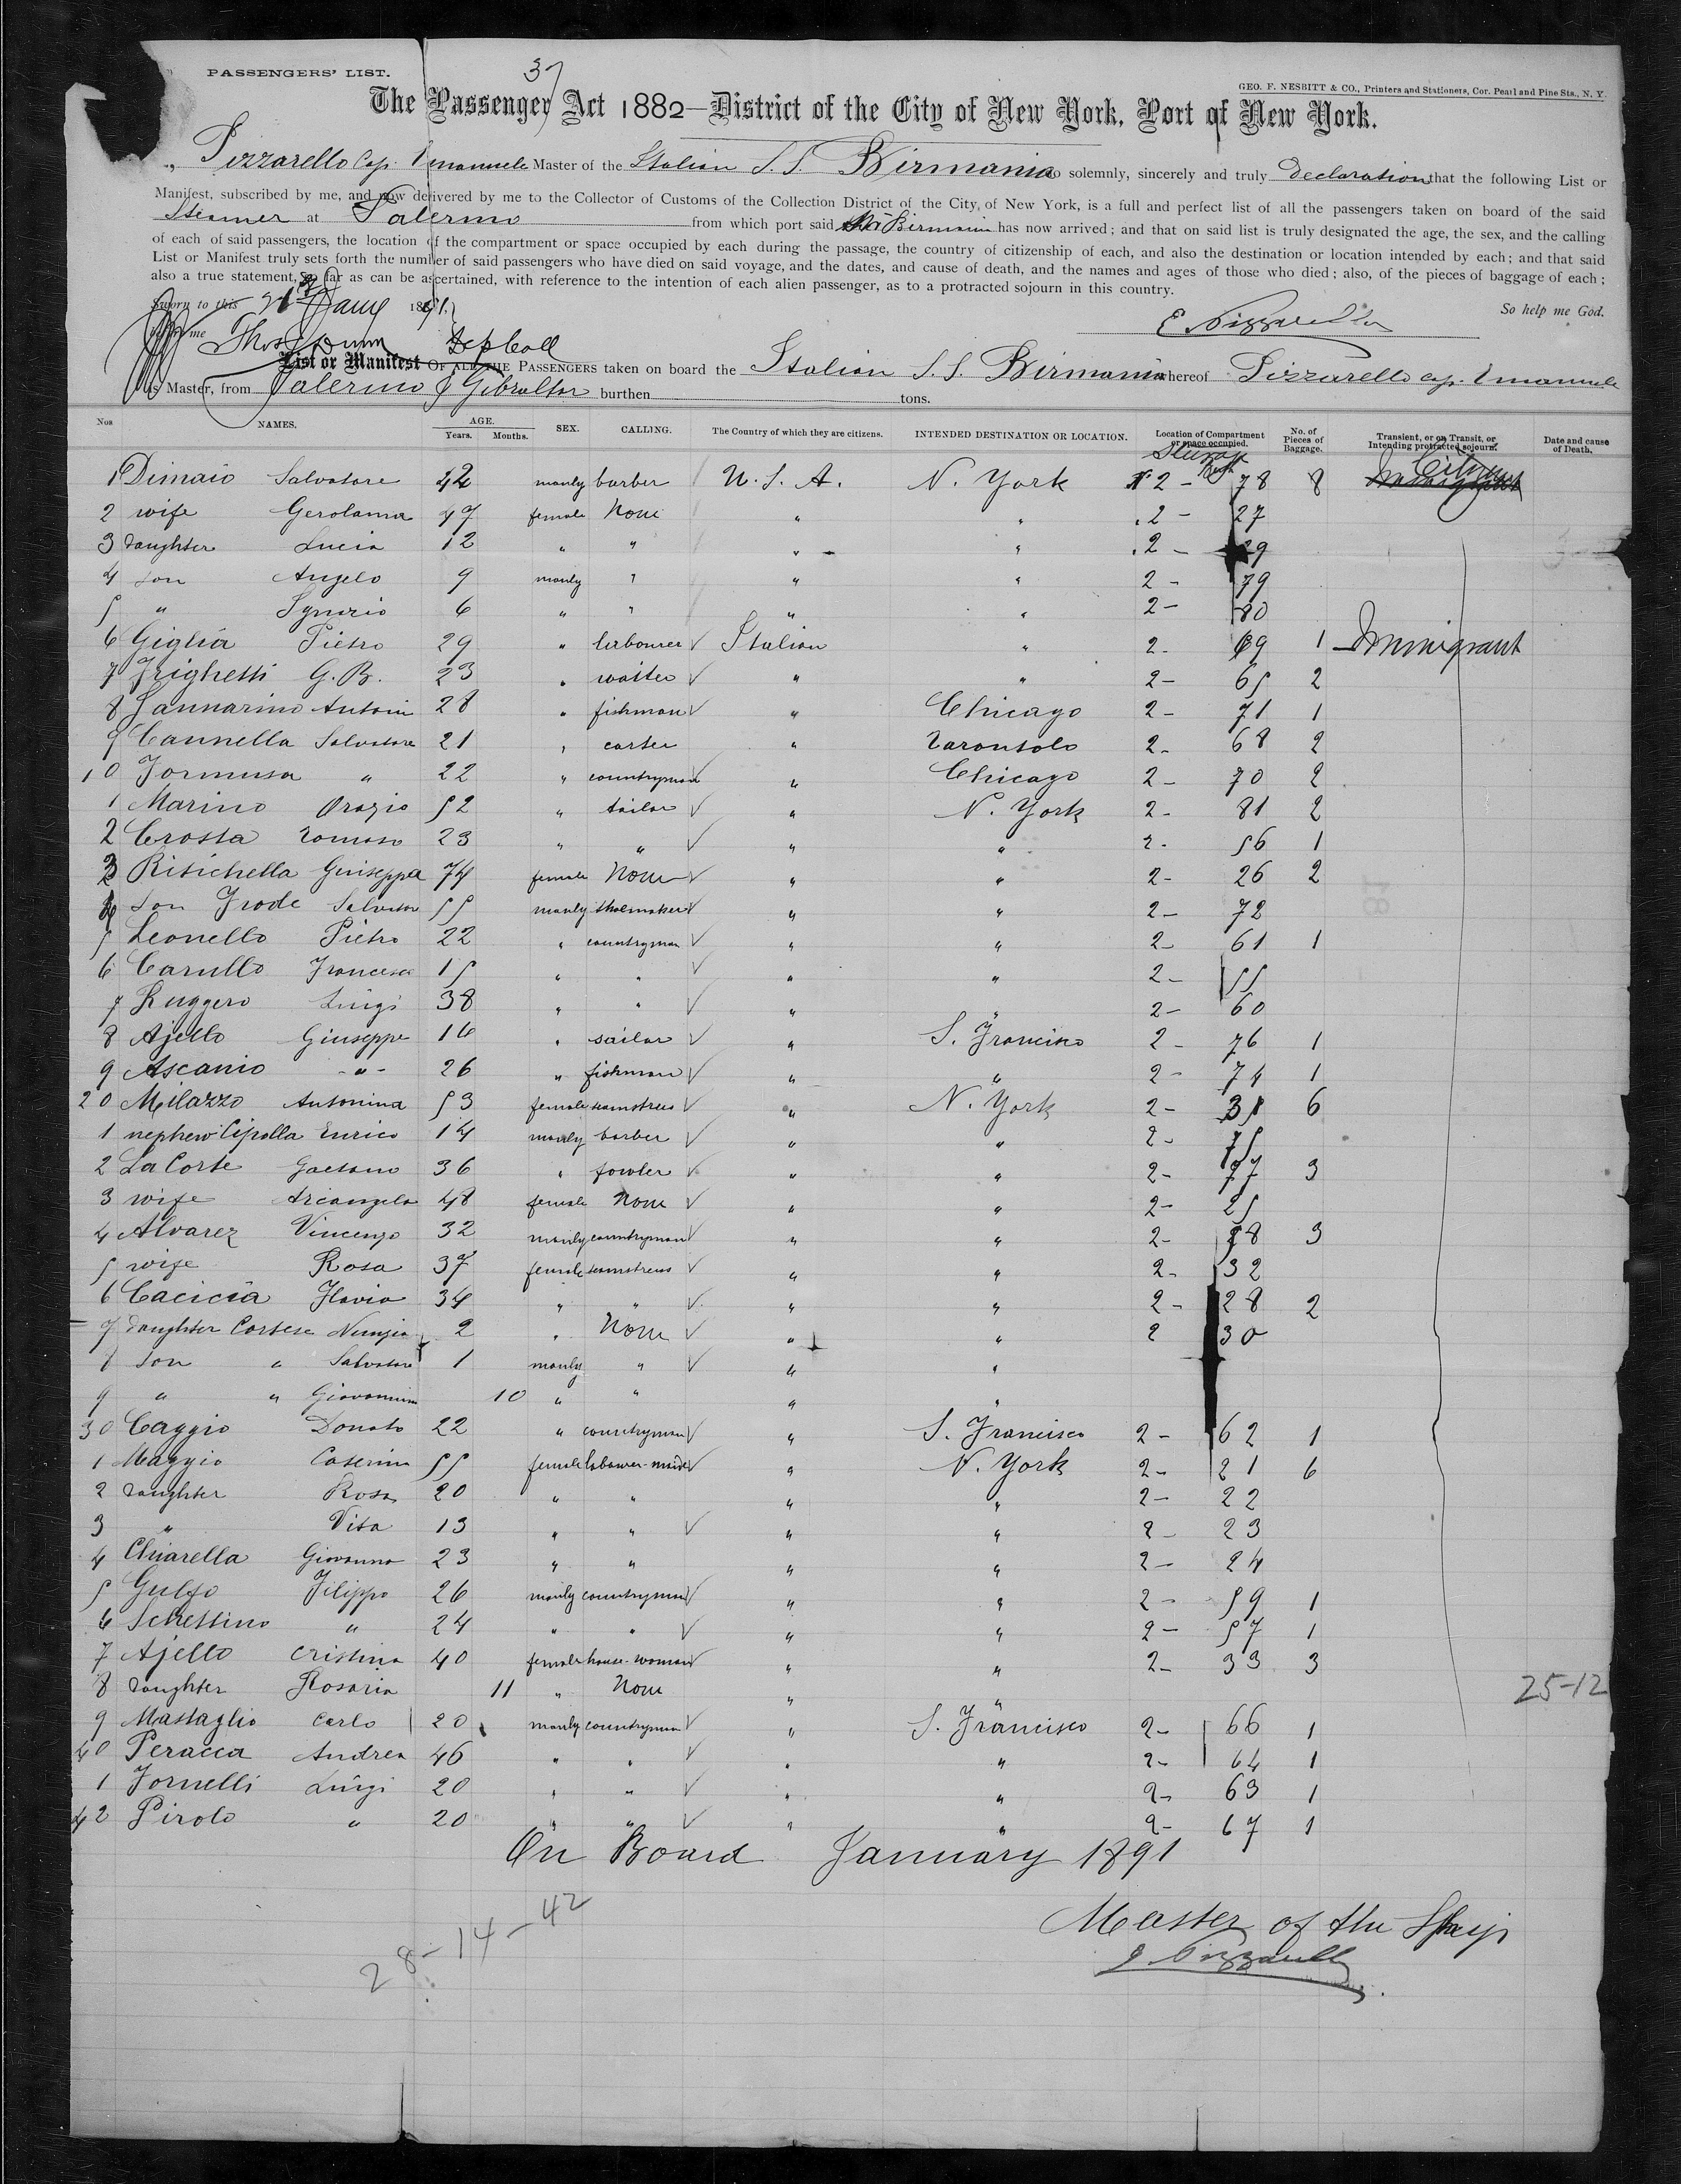 37
PASSENGERS' LIST.
GEO. F. NESBITT & CO., Printers and Stationers, Cor. Pearl and Pine Sts., N. Y.
The Passenger Act 1882—District of the City of New York, Port of New York.
Pizzarello Cap. Emanuele Master of the Italian S. S. Birmania do solemnly, sincerely and truly declaration that the following List or
Manifest, subscribed by me, and now delivered by me to the Collector of Customs of the Collection District of the City, of New York, is a full and perfect list of all the passengers taken on board of the said
Steamer at Palermo from which port said Birmania has now arrived; and that on said list is truly designated the age, the sex, and the calling
of each of said passengers, the location of the compartment or space occupied by each during the passage, the country of citizenship of each, and also the destination or location intended by each; and that said
List or Manifest truly sets forth the number of said passengers who have died on said voyage, and the dates, and cause of death, and the names and ages of those who died; also, of the pieces of baggage of each;
also a true statement, so far as can be ascertained, with reference to the intention of each alien passenger, as to a protracted sojourn in this country.
Sworn to this Jany 1891.
So help me God.
me Thos Dunn Dep Coll
E Pizzarello
List or Manifest OF ALL THE PASSENGERS taken on board the Italian S. S. Birmania whereof Pizzarello cap. Emanuele
is Master, from Palermo & Gibraltar burthen tons.
Nos NAMES. AGE. Years. Months. SEX. CALLING. The Country of which they are citizens. INTENDED DESTINATION OR LOCATION. Location of Compartment or space occupied. No. of Pieces of Baggage. Transient, or on Transit, or Intending protracted sojourn. Date and cause of Death.
Steerage
1 Dimaio Salvatore 42 manly barber U. S. A. N. York 2 - 78 8 Citizen
2 wife Gerolama 47 female None " " 2 - 27
3 daughter Lucia 12 " " " " 2 - 29
4 son Angelo 9 manly " " " 2 - 79
5 " Ignazio 6 " " " " 2 - 80
6 Giglia Pietro 29 " labourer Italian " 2 - 69 1 Immigrant
7 Frighetti G. B. 23 " waiter " " 2 - 65 2
8 Sannarino Antoni 28 " fishman " Chicago 2 - 71 1
9 Cannella Salvatore 21 " carter " 2 - 68 2
10 Formusa " 22 " countryman " Chicago 2 - 70 2
1 Marino Orazio 52 " tailor " N. York 2 - 81 2
2 Crosta Tomaso 23 " " " " 2 - 56 1
3 Risichella Giuseppa 74 female None " " 2 - 26 2
4 son Frode Salvator 55 manly shoemaker " " 2 - 72
5 Leonello Pietro 22 " countryman " " 2 - 61 1
6 Carullo Francesco 15 " " " " 2 - 55
7 Ruggero Luigi 38 " " " " 2 - 60
8 Ajello Giuseppe 16 " sailor " S. Francisco 2 - 76 1
9 Ascanio -"- 26 " fishman " " 2 - 74 1
20 Milazzo Antonina 53 female seamstress " N. York 2 - 31 6
1 nephew Cipolla Enrico 14 manly barber " " 2 - 75
2 La Corte Gaetano 36 " fowler " " 2 - 77 3
3 wife Arcangela 48 female None " " 2 - 25
4 Alvarez Vincenzo 32 manly countryman " " 2 - 58 3
5 wife Rosa 37 female seamstress " " 2 - 32
6 Cacicia Flavia 34 " " " " 2 - 28 2
7 daughter Cortese Nunzia 2 " None " " 2 30
8 son " Salvatore 1 manly " " "
9 " " Giovannino 10 " " " "
30 Caggio Donato 22 " countryman " S. Francisco 2 - 62 1
1 Maggio Caterina 55 female labourer-maid " N. York 2 - 21 6
2 daughter Rosa 20 " " " " 2 - 22
3 " Vita 13 " " " " 2 - 23
4 Chiarella Giovanna 23 " " " " 2 - 24
5 Gulfo Filippo 26 manly countryman " " 2 - 59 1
6 Schettino " 24 " " " " 2 - 57 1
7 Ajello Cristina 40 female house-woman " " 2 - 33 3
8 daughter Rosaria 11 " None " "
25-12
9 Mastaglio Carlo 20 manly countryman " S. Francisco 2 - 66 1
40 Peracca Andrea 46 " " " " 2 - 64 1
1 Fornelli Luigi 20 " " " " 2 - 63 1
42 Pirolo " 20 " " " " 2 - 67 1
On Board January 1891
28-14-42
Master of the Ship
E. Pizzarello